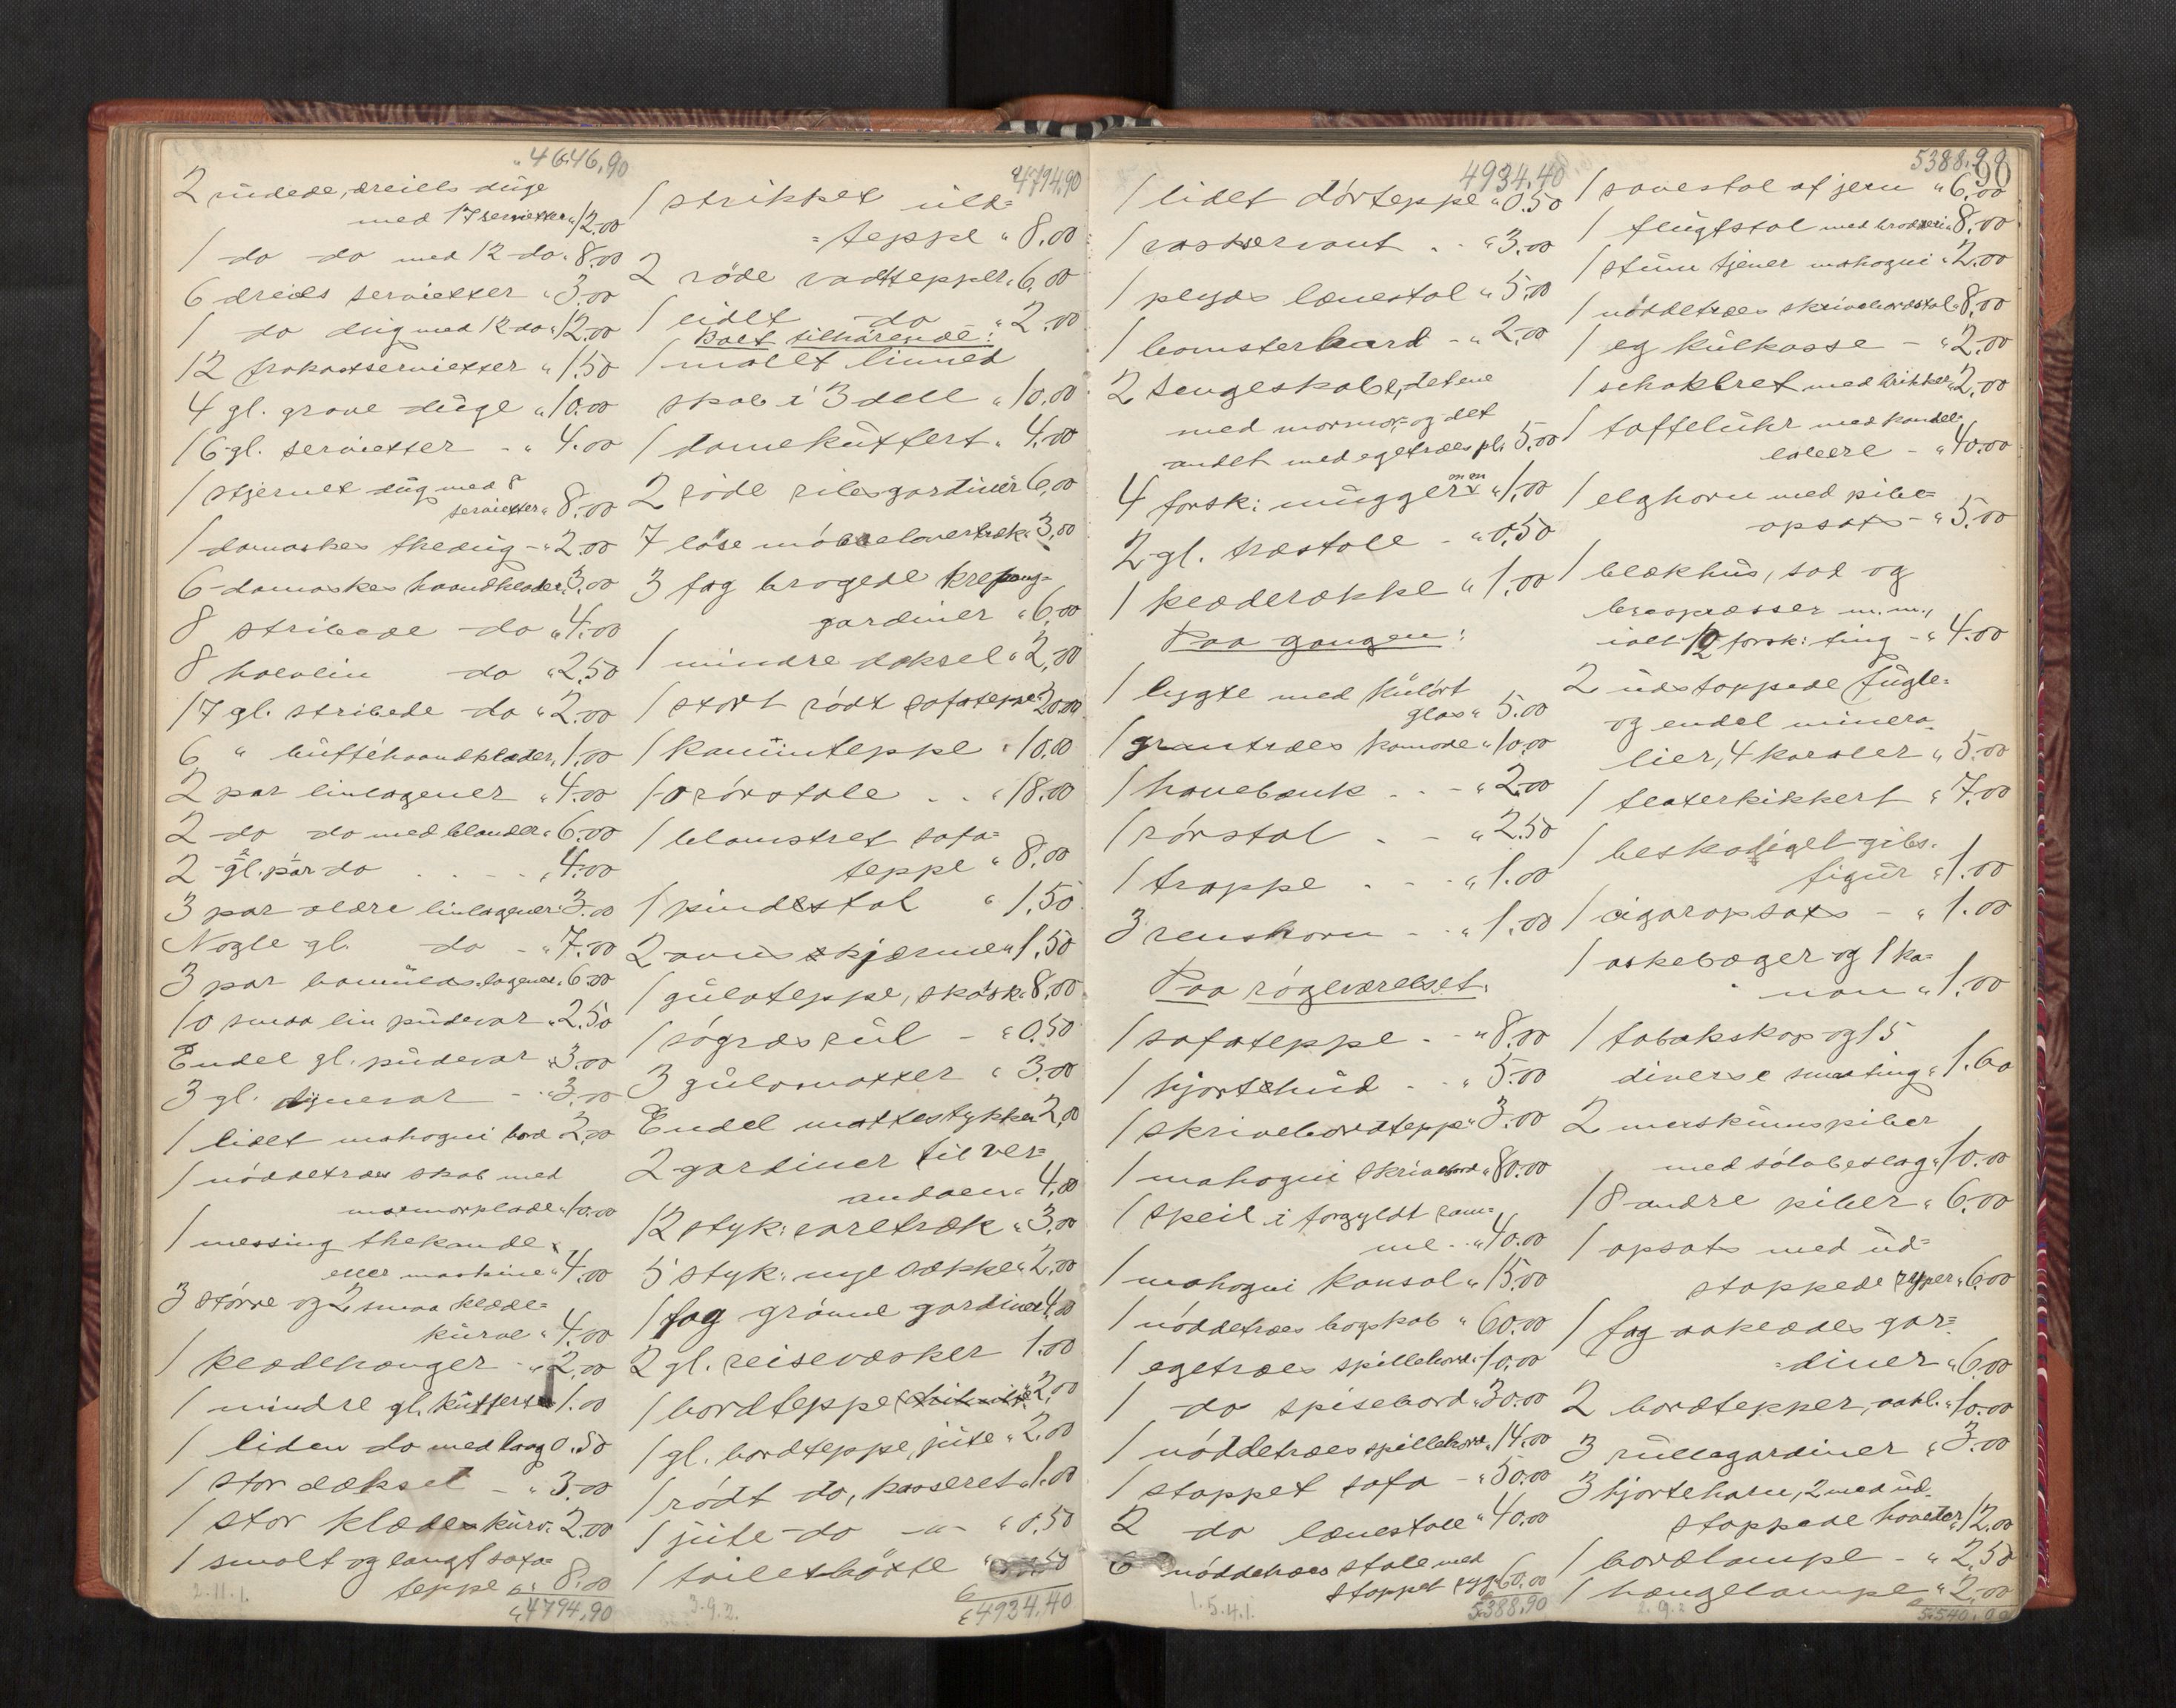 4646,90
2 rudede, dreiels duge
med 17 servietter " 12.00
1 do do med 12 do " 8.00
6 dreiels servietter " 3.00
1 do dug med 12 do " 12.00
12 frokostservietter " 1.50
4 gl. grove duge " 10.00
16 gl. servietter - " 4.00
1 stjernet dug med 8
servietter " 8.00
1 damaskes thedug - " 2.00
6 damaskes haandklæder " 3.00
8 stribede do " 4.00
8 halvlin do " 2.50
17 gl. stribede do " 2.00
6 " bufféhaandklæder " 1.00
2 par linlagener " 4.00
2 do do med blonder " 6.00
2 gl. par do . . - - " 4.00
3 par ældre linlagener " 3.00
Nogle gl. do - " 7.00
3 par bomulds-lagener " 6.00
10 smaa lin pudevar " 2.50
Endel gl. pudevar " 3.00
3 gl. dynevar - " 3.00
1 lidet mahogni bord 2.00
1 nöddetræs skab med
marmorplade " 10.00
1 messing thekande
eller maskine " 4.00
3 större og 2 smaa klæde=
kurve " 4.00
1 klædehænger - " 2.00
1 mindre gl. kuffert " 1.00
1 liden do med laag 0.50
1 stor dæksel - " 3.00
1 stor klædeskurv " 2.00
1 smalt og langt sofa=
teppe " 8.00
2.11.1.
" 4794,90
4794,90
1 strikket uld=
=teppe " 8.00
2 röde vadtepper " 6.00
1 lidt do " 2.00
Boet tilhörende:
1 malet linned
skab i 3 dele " 10.00
1 damekuffert " 4.00
2 röde ribsgardiner 6.00
7 löse möbelovertræk " 3.00
3 fag brogede kretong=
gardiner " 6.00
1 mindre dæksel " 2.00
1 stort rödt sofateppe " 20.00
1 kaninteppe " 10.00
10 rörstole . . " 18.00
1 blomstret sofa=
teppe " 8.00
1 pindestol " 1.50
2 ovnskjærme " 1.50
1 gulvteppe, skotsk " 8.00
1 sögræs rul - " 0.50
3 gulvmatter " 3.00
Endel mattestykker 2.00
2 gardiner til ver=
andaen " 4.00
12 styk: varetræk " 3.00
5 styk: nye sække " 2.00
1 fag grönne gardiner 4.00
2 gl. reisevæsker 1.00
1 bordteppe " 2.00
1 gl. bordteppe, jute " 2.00
1 rödt do, kasseret " 1.00
1 jute do -"- " 0.50
1 toiletbötte
3.9.2.
" 4934,40
4934,40
1 lidet dörteppe " 0.50
1 vaskservant . . " 3.00
1 plyds lænestol " 5.00
1 blomsterbord - " 2.00
2 sengeskabe, det ene
med marmor- og det
andet med egetræs pl. 5.00
4 forsk: muggerx " 1.00
2 gl. træstole - " 0.50
1 klæderække " 1.00
Paa gangen:
1 lygte med kulört
glas " 5.00
1 grantræs komode " 10.00
1 havebænk . . - " 2.00
1 rörstol . - " 2.50
1 trappe . . - " 1.00
3 renshorn - . " 1.00
Paa rögeværelset.
1 sofateppe . - " 8.00
1 hjortehud . . " 5.00
1 skrivebordteppe " 3.00
1 mahogni skrivebord " 80.00
1 speil i forgyldt ram=
me . . " 40.00
1 mahogni konsol " 15.00
1 nöddetræs bogskab " 60.00
1 egetræs spillebord " 10.00
1 do spisebord " 30.00
1 nöddetræs spillebord " 14.00
1 stoppet sofa - " 50.00
2 do lænestole " 40.00
6 nöddetræs stole med
stoppet ryg " 60.00
1.5.4.1.
5388,90
5388,90
90
1 savestol af jern " 6.00
1 flugtstol med broderi " 8.00
1 stum tjener mahogni " 2.00
1 nöddetræs skrivebordstol " 8.00
1 eg kulkasse - " 2.00
1 schakbret med brikker " 2.00
1 taffeluhr med kande=
labere - " 40.00
1 elghorn med pibe=
opsats - " 5.00
1 blækhus, sod og
brevpresser m.m.,
ialt 12 forsk: ting - " 4.00
2 udstoppede fugle=
og endel minera
lier, 4 koraler " 5.00
1 teaterkikkert " 7.00
1 beskadiget gibs.
figur " 1.00
1 cigaropsats - " 1.00
1 askebæger og 1 ka=
non " 1.00
1 tobakskop og 15
diverse smaating " 1.60
2 merskumspiber
med sölvbeslag " 10.00
18 andre piber " 6.00
1 opsats med ud=
stoppede ryper " 6.00
1 fag aaklædes gar=
=diner " 6.00
2 bordtepper, aakl. " 10.00
3 rullegardiner " 3.00
3 hjortehorn, 2 med ud.
stoppede hoveder " 12.00
1 bordlampe - " 2.50
1 hængelampe " 2.00
2.9.2
5.540,90